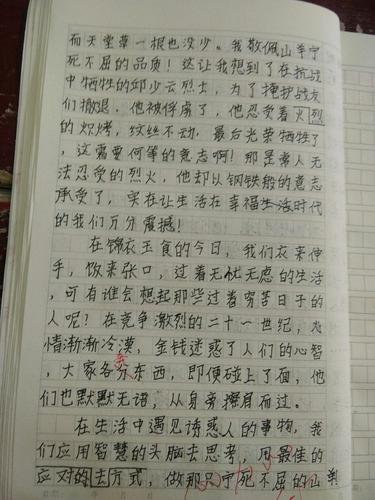 而天堂草一根也没少。我敬佩山羊宁
死不屈的品质！这让我想到了在抗战
中牺牲的邱少云烈士，为了掩护战友
们撤退，他被俘虏了，他忍受着火烈
的炽烤，纹丝不动，最后光荣牺牲了
，这需要何等的意志啊！那是常人无
法忍受的烈火，他却以钢铁般的意志
承受了，实在让生活在幸福生活时代
的我们万分震撼！
在锦衣玉食的今日，我们衣来伸
手，饭来张口，过着无忧无虑的生活
，可有谁会想起那些过着穷苦日子的
人呢？在竞争激烈的二十一世纪，人
情渐渐冷漠，金钱迷惑了人们的心智
，大家各分东西，即便碰上了面，他
们也默默无语，从身旁擦肩而过。
在生活中遇见诱惑人的事物，我
们应用智慧的头脑去思考，用最佳的
应对的去方式，做那只宁死不屈的山羊